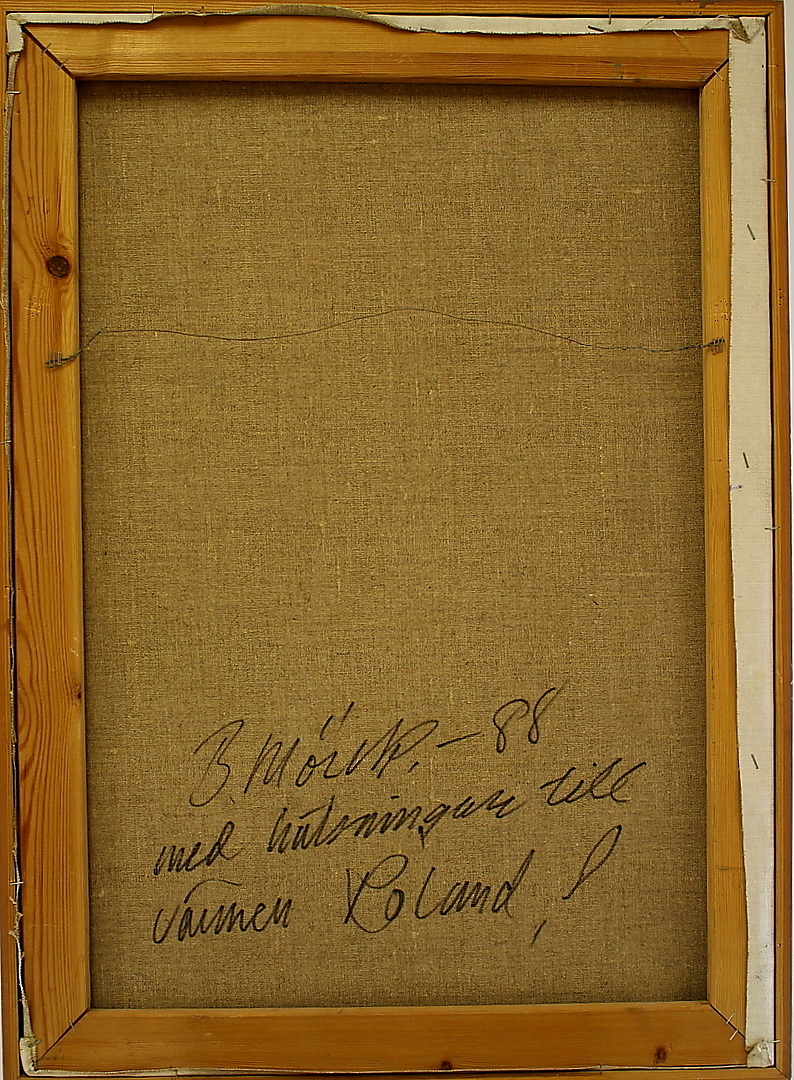 B. Mörck. – 88
med hälsningar till
vännen Roland!